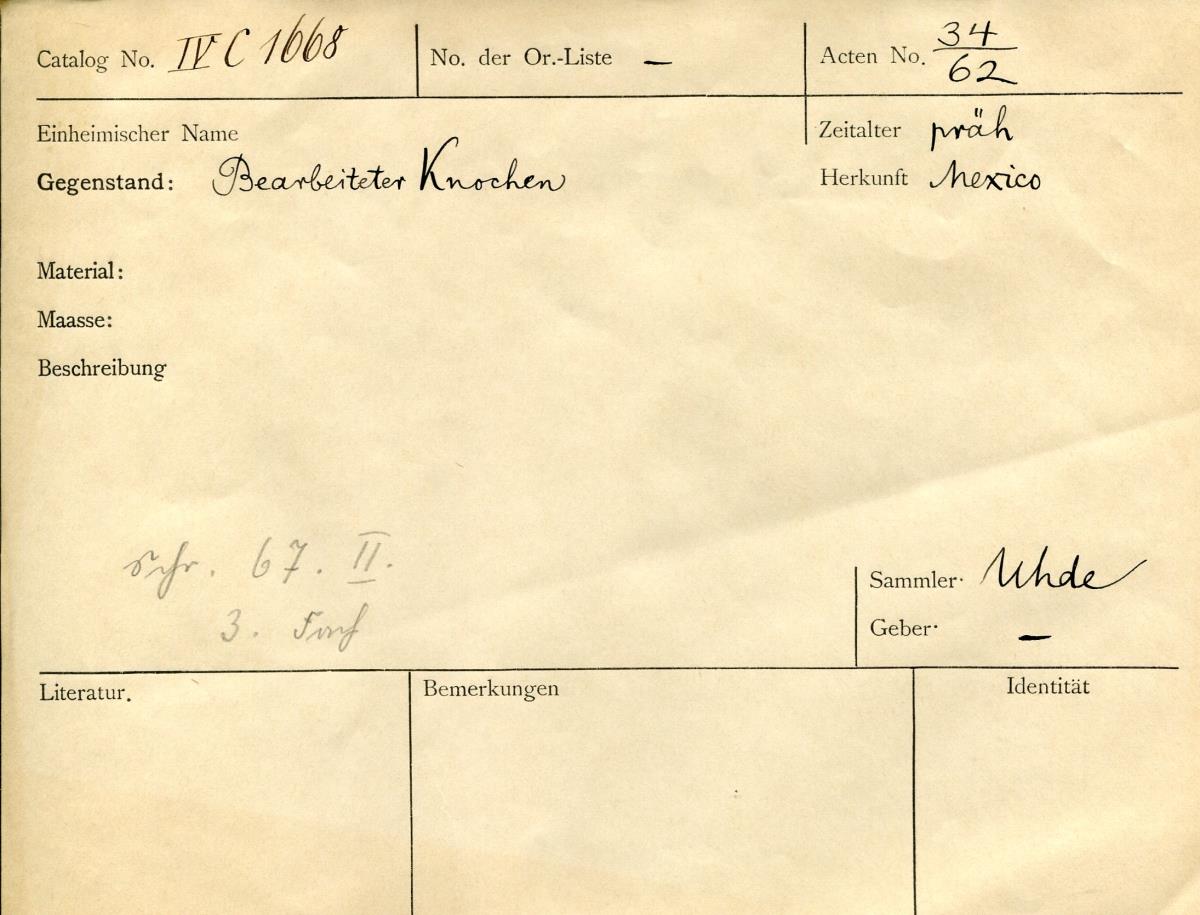 Catalog No. IV C 1668 No. der Or.-Liste — Acten No. 34/62
Einheimischer Name Zeitalter präh
Gegenstand: Bearbeiteter Knochen Herkunft Mexico
Material:
Maasse:
Beschreibung
Schr. 67. II.
3. Fach
Sammler· Uhde
Geber· —
Literatur. Bemerkungen Identität